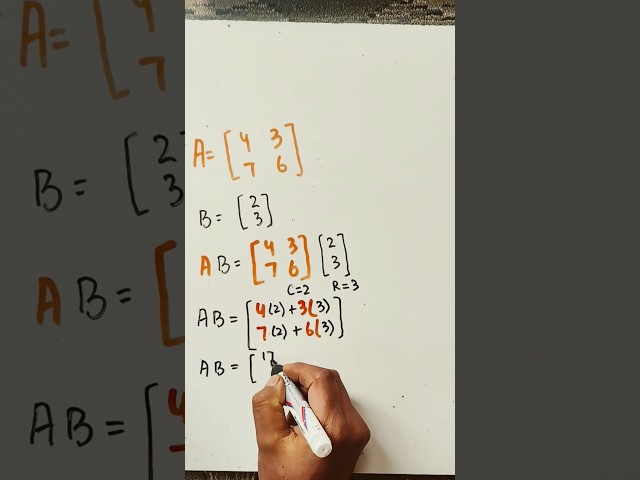 A= [4 3
7 6]
B = [2
3]
AB = [4 3
7 6] [2
3]
C=2 R=3
AB = [4(2) + 3(3)
7(2) + 6(3)]
AB = [17